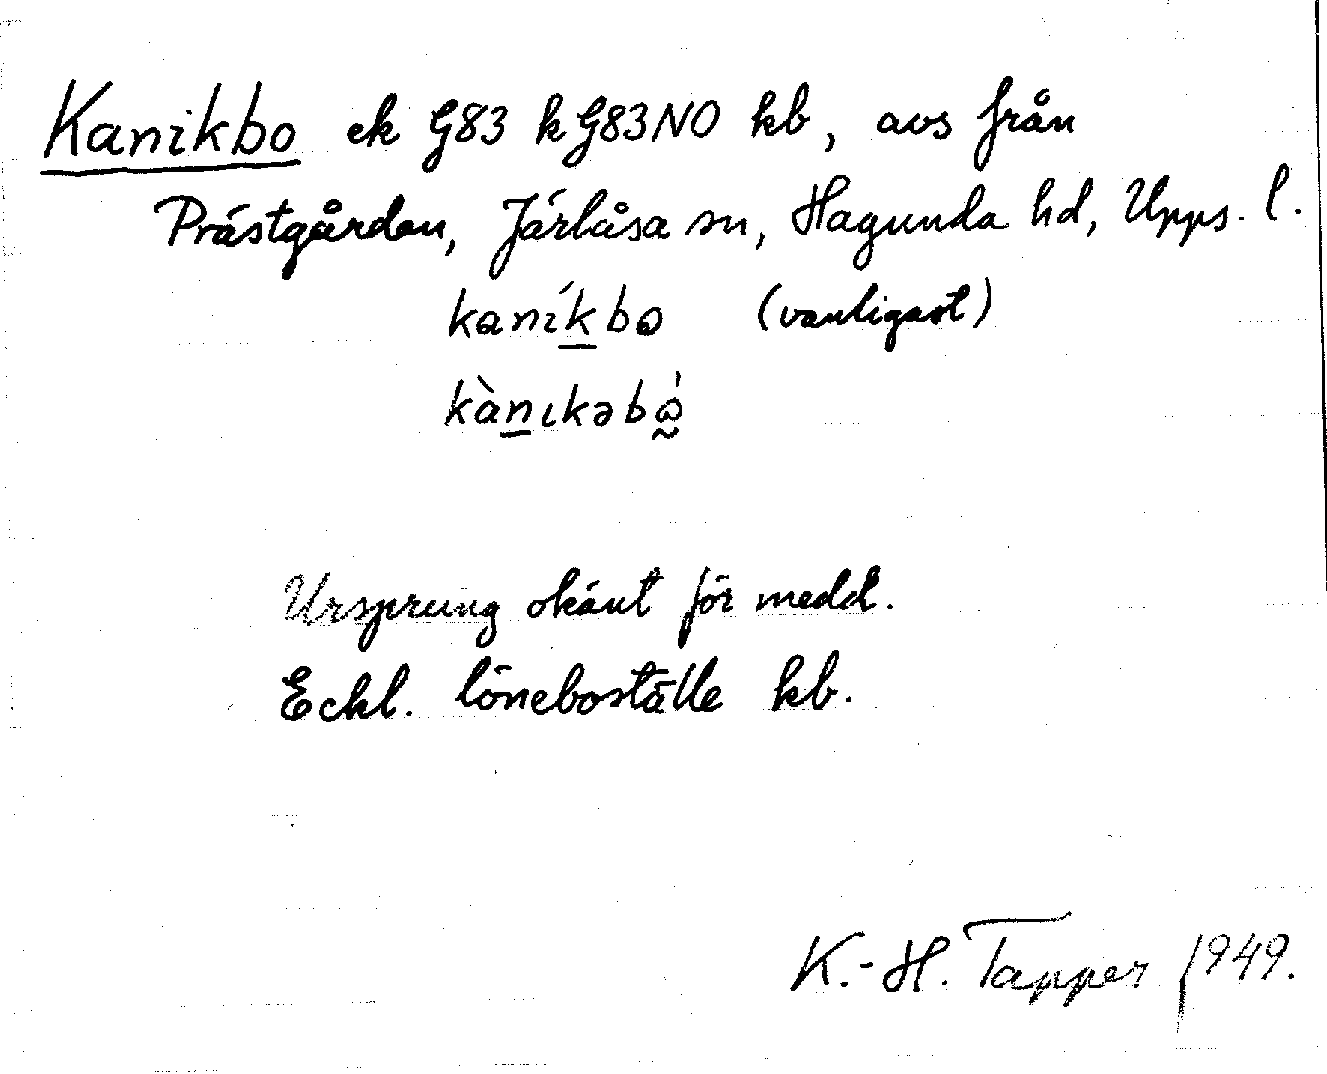 Kanikbo ek G83 kG83NO kb, avs från
Prästgården, Järlåsa sn, Hagunda hd, Upps. l.
kaníkbo (vanligast)
kànıkəbɷ̀
Ursprung okänt för medd.
Eckl. löneboställe kb.
K.-H. Tapper 1949.